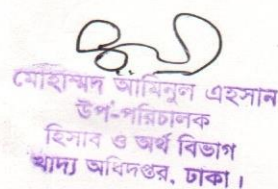 মোহাম্মদ আমিনুল এহসান
উপ-পরিচালক
হিসাব ও অর্থ বিভাগ
খাদ্য অধিদপ্তর, ঢাকা।